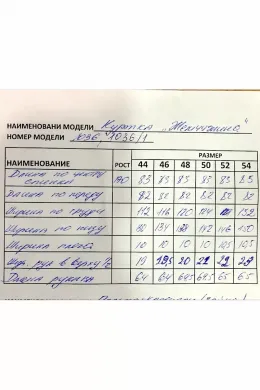 НАИМЕНОВАНИ МОДЕЛИ Куртка „Жемчужина"
НОМЕР МОДЕЛИ 1036, 1036/1
РАЗМЕР
НАИМЕНОВАНИЕ РОСТ 44 46 48 50 52 54
Длина по центру спинки 170 83 83 83 83 83 83
Длина по переду 82 82 82 82
Ширина по груди 112 116 120 132
Ширина по низу 134 142 146 150
Ширина плеча 10 10 10 10 10,5 10,5
Шир. рук в верху 19 19,5 20 21 22 23
Длина рукава 64 64 64,5 64,5 65 65